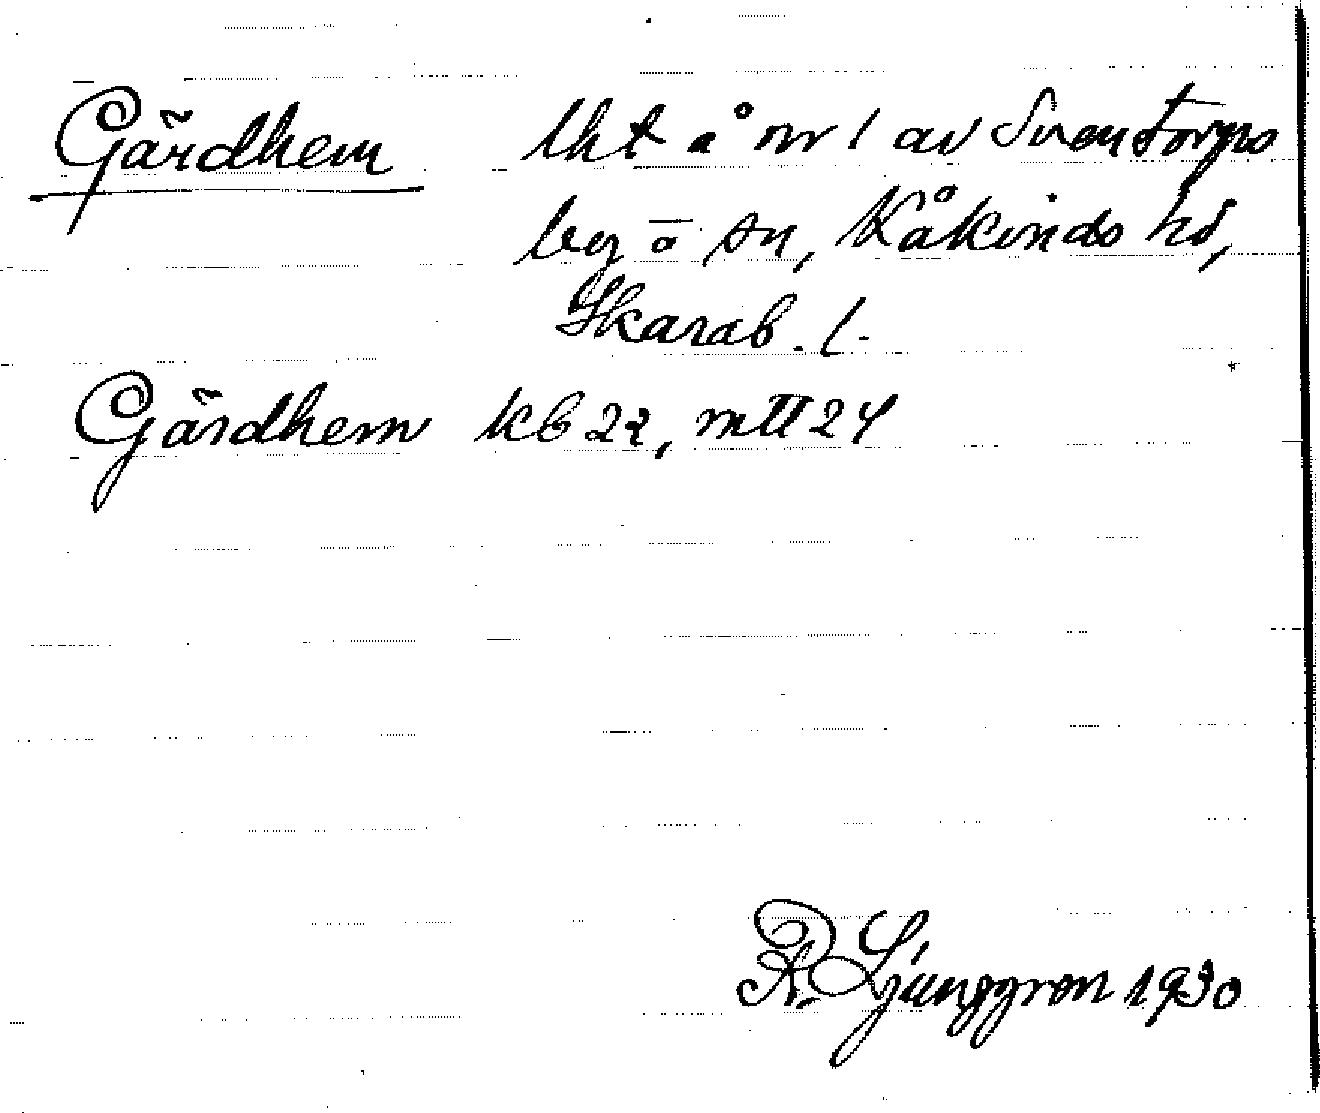 Gärdhem lht å nr 1 av Sventorps
by o sn, Kåkinds hd,
Skarab. l.
Gärdhem kb 22, mtl 24
R. Ljunggren 1930